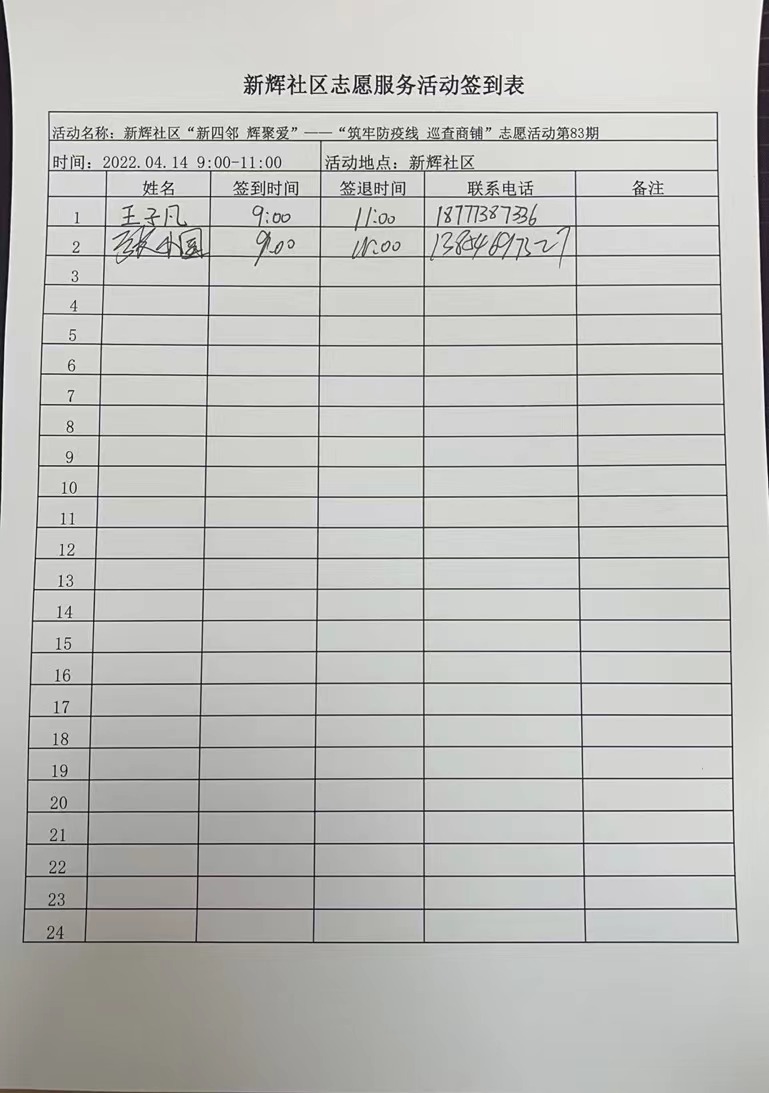 新辉社区志愿服务活动签到表
活动名称：新辉社区“新四邻 辉聚爱”——“筑牢防疫线 巡查商铺”志愿活动第83期
时间：2022.04.14 9:00-11:00 活动地点：新辉社区
姓名 签到时间 签退时间 联系电话 备注
1 王子凡 9:00 11:00 18777387336
2 9:00 11:00
3
4
5
6
7
8
9
10
11
12
13
14
15
16
17
18
19
20
21
22
23
24